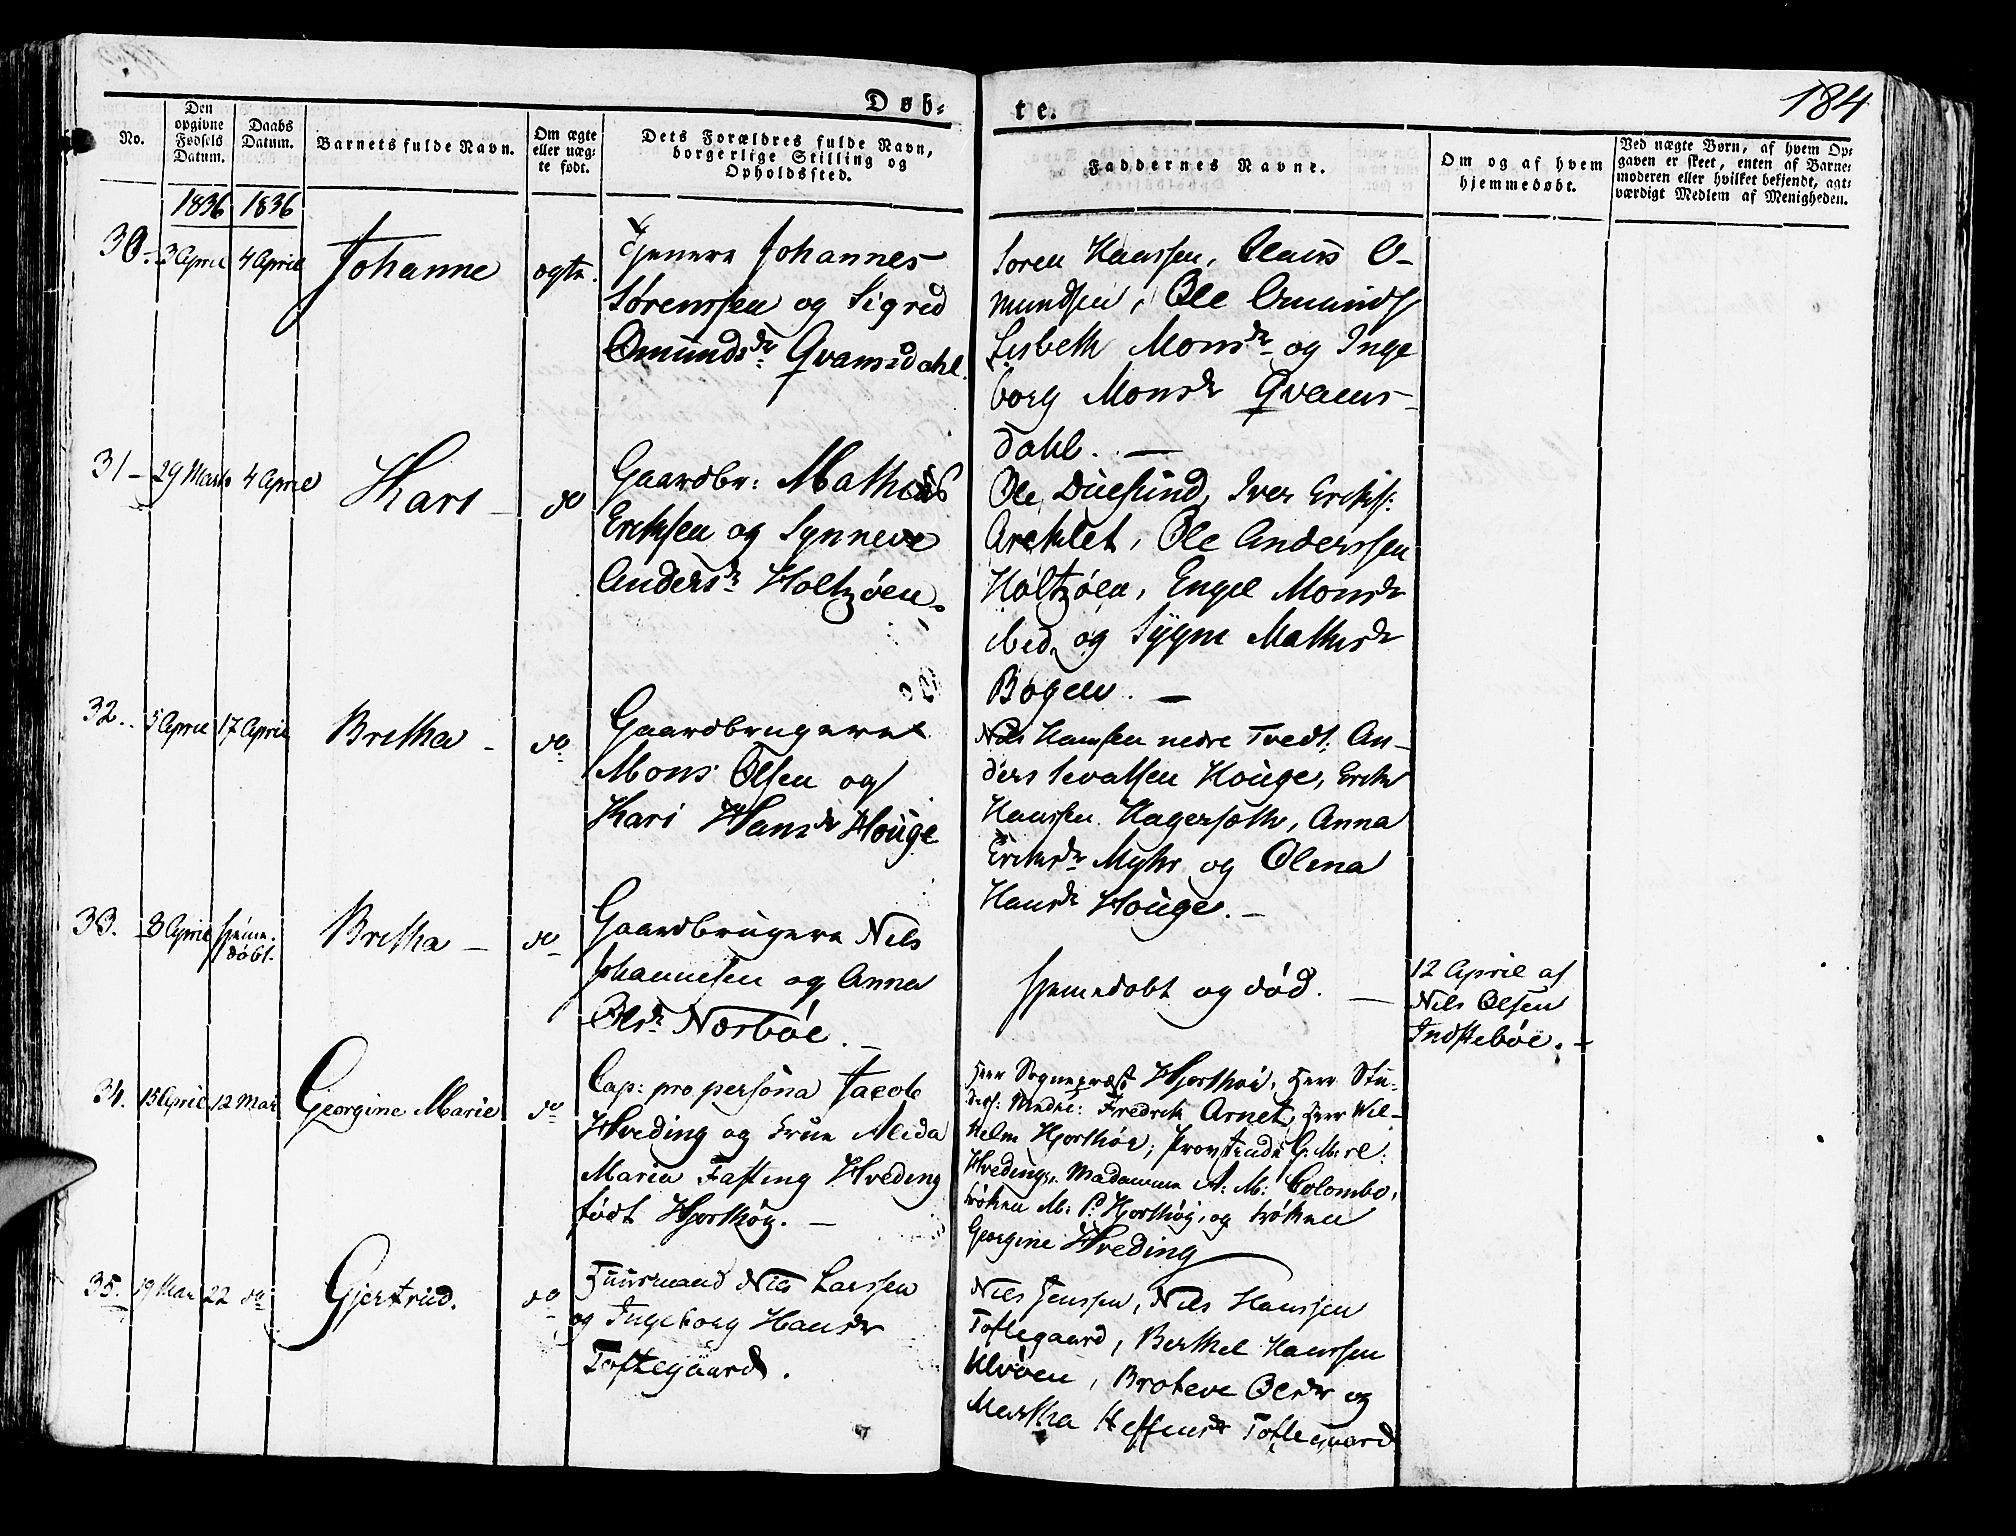 184
Døb-
te.
No.
Den opgivne Fødsels Datum.
Daabs Datum.
Barnets fulde Navn.
Om ægte eller uæg- te født.
Dets Forældres fulde Navn, borgerlige Stilling og Opholdssted.
Faddernes Navne.
Om og af hvem hjemmedøbt.
Ved uægte Børn, af hvem Op- gaven er skeet, enten af Barne- moderen eller hvilket bekjendt, agt- værdigt Medlem af Menigheden.
1836 1836
30- 3 April 4 April Johanne ægte.
Johannes
Sørenssen og Sigrid
Omundsdr Qvamsdahl.
Søren Hanssen, Claus O-
mundsen, Ole Omunds
Lisbeth Monsdr og Inge
borg Monsdr Qvams-
dahl. -
31- 29 Marts 4 April Kari - do
Gaardbr: Mathias
Eriksen og Synneve
Andersdr Holtzøen.
Ole Duesund, Iver Eriks:
Areklet, Ole Anderssen
Holtzøen, Engel Monsdr
ibid. og Sygne Mathisdr
Bogen. -
32.. 5 April 17 April Bretha - do
Gaardbrugere
Mons Olsen og
Kari Hansdr Houge
Nils Hansen nedre Tvedt: An-
ders Sevatsen Houge, Erik
Hanssen Hagersæth, Anna
Eriksdr Myhr og Olina
Hansdr Houge. -
33. 8 April hjeme- døbt. Bretha - do
Gaardbrugere Nils
Johannesen og Anna
Olsdr Næsbøe. -
hjemedøbt og død. -
12 April af
Nils Olsen
Indstebøe. -
34. 15 April 12 Mai Georgine Marie do
Cap: pro persona Jacob
Hveding og Frue Alida
Maria Fasting Hveding
født Hjorthøg. -
Herr Sognepræst Hjorthøi, Herr Stu-
dios: Medic: Fredrik Arnet, Herr Wil-
helm Hjorthøi, Provstinde G: M:
Hveding, Madamme A: M: Colombo,
Frøken M: P: Hjorthøg, og Frøken
Georgine Hveding
35. 19 Mai 22 do Gjertrud. do
Huusmand Nils Larssen
og Ingeborg Hansdr
Toftegaard.
Nils Jenssen, Nils Hanssen
Toftegaard, Berthel Hanssen
Ulvøen, Broteve Olsdr og
Martha Steffensdr Toftegaard